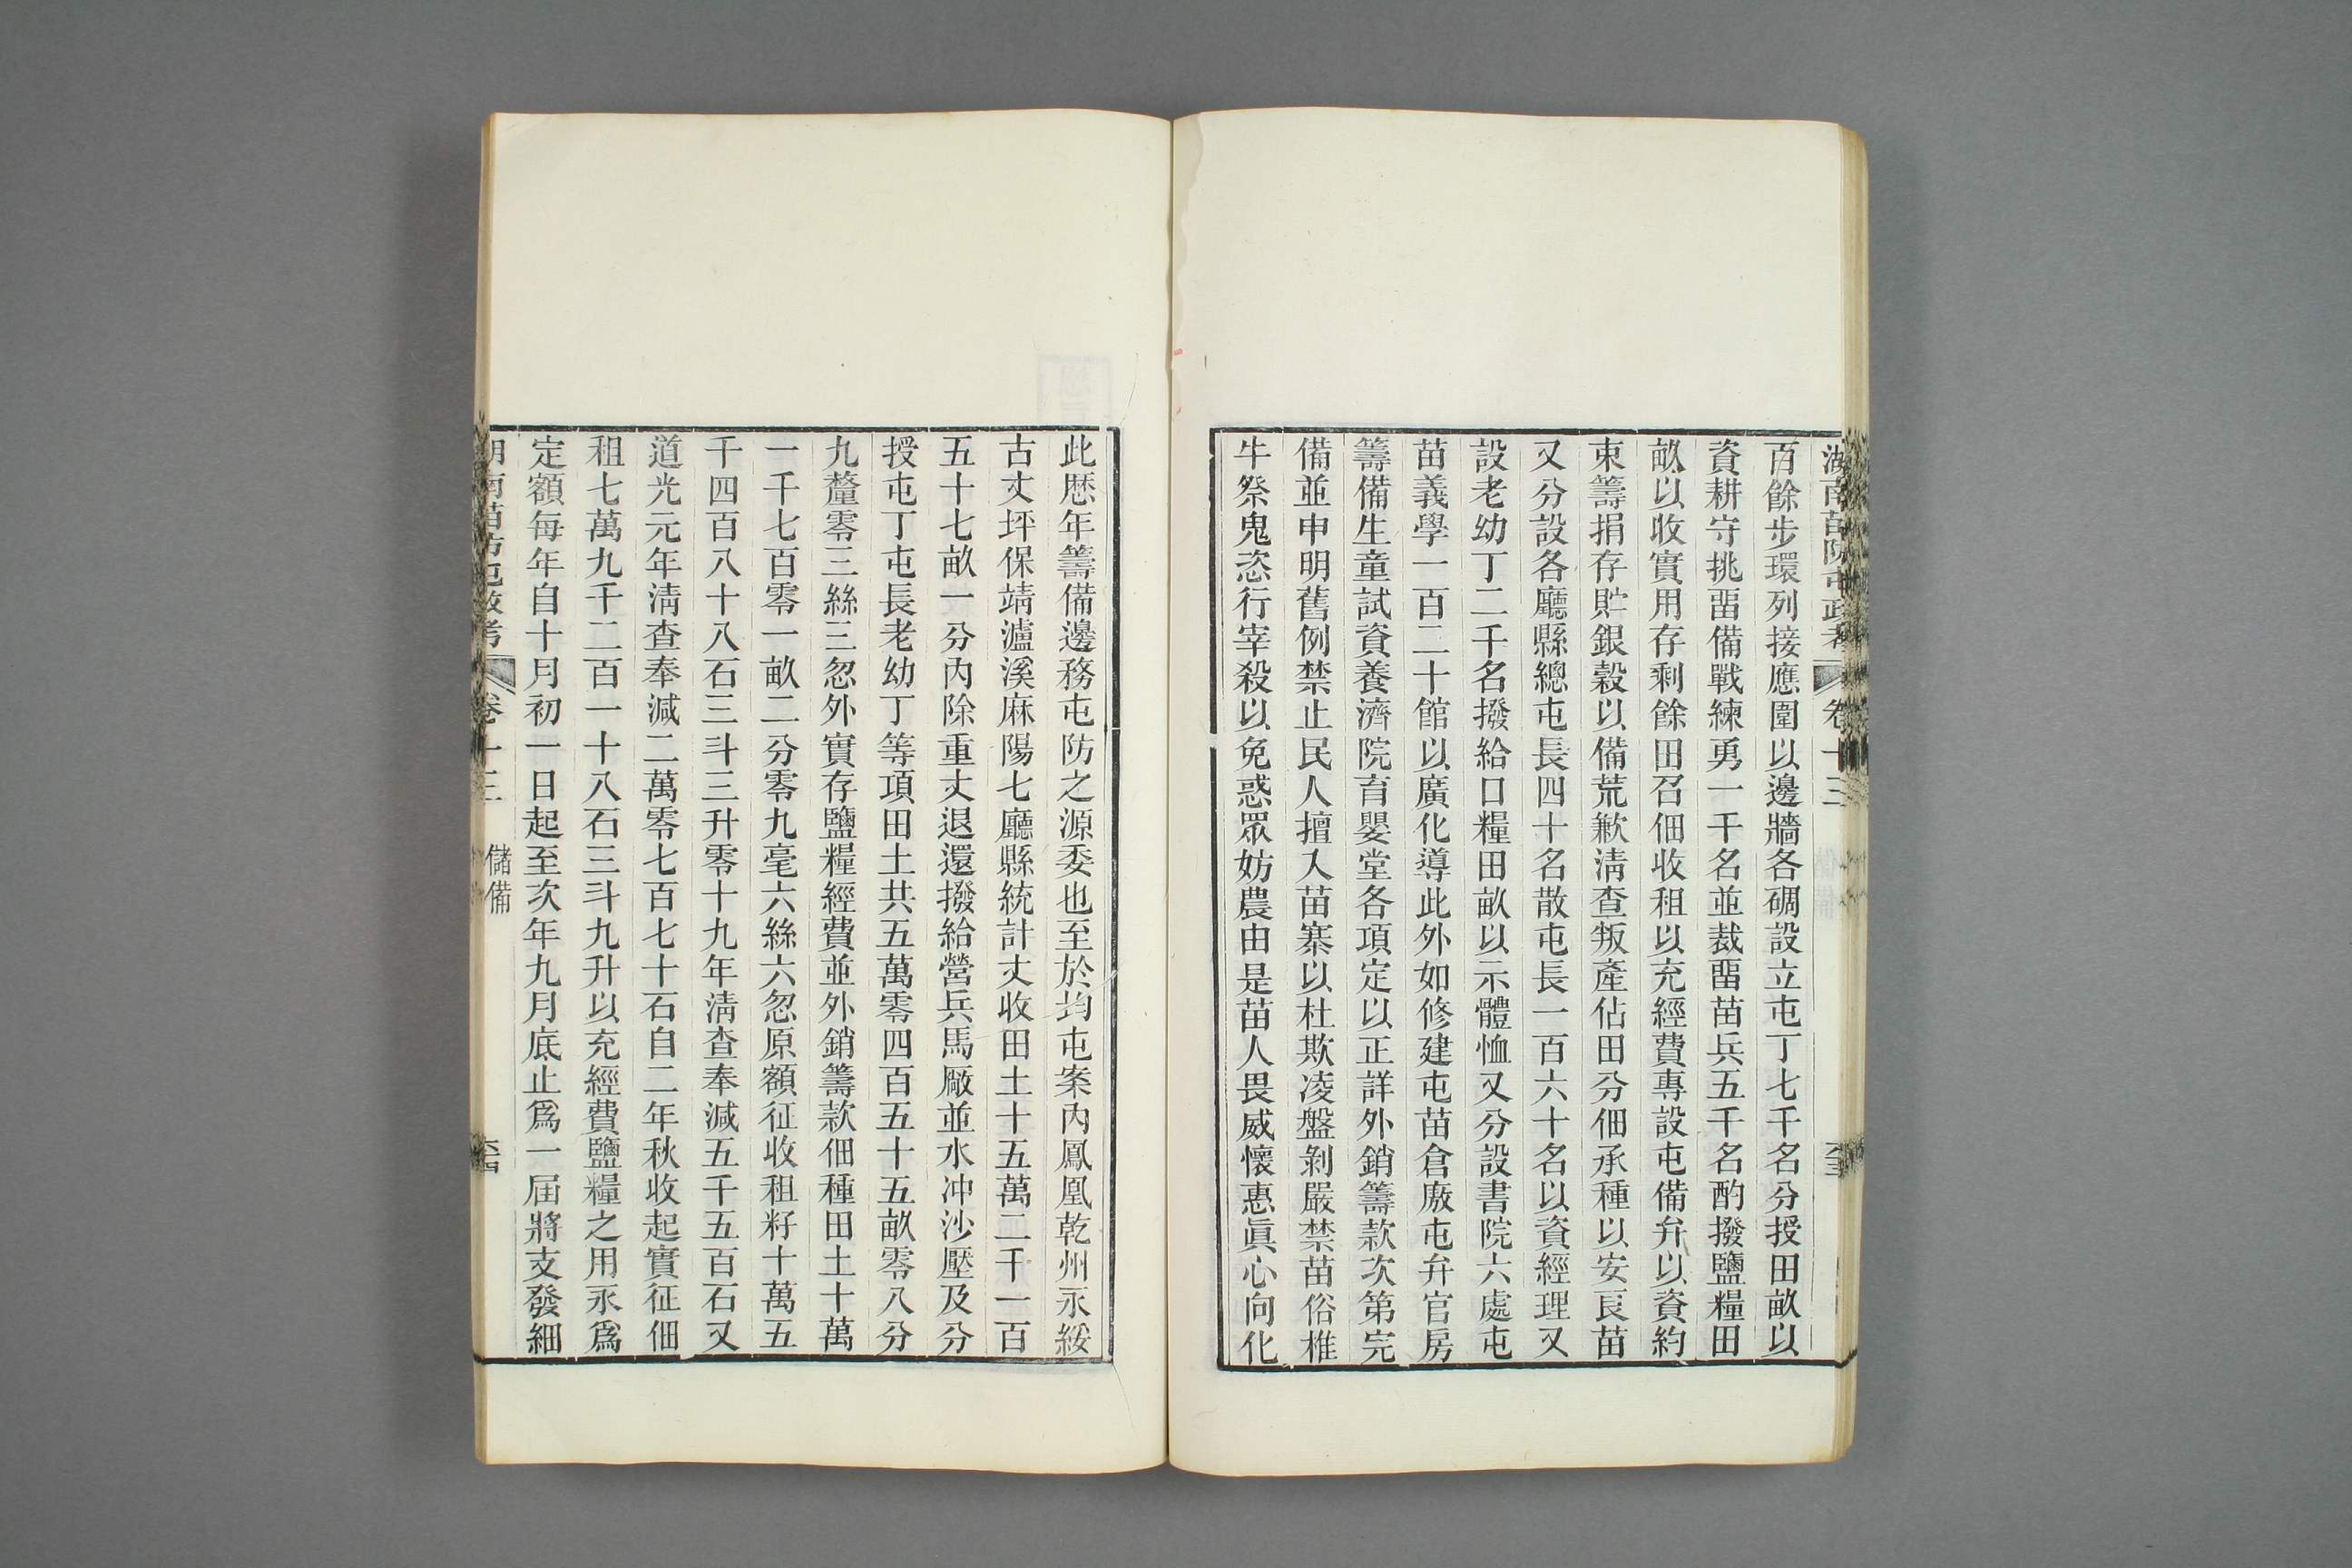 湖南苗防屯政考 卷十三 六三
百餘步環列接應圍以邊牆各碉設立屯丁七千名分授田畝以
資耕守挑畱備戰練勇一千名並裁畱苗兵五千名酌撥鹽糧田
畝以收實用存剩餘田召佃收租以充經費專設屯備弁以資約
束籌捐存貯銀穀以備荒歉淸查叛產佔田分佃承種以安良苗
又分設各廳縣總屯長四十名散屯長一百六十名以資經理又
設老幼丁二千名撥給口糧田畝以示體恤又分設書院六處屯
苗義學一百二十館以廣化導此外如修建屯苗倉廒屯弁官房
籌備生童試資養濟院育嬰堂各項定以正詳外銷籌款次第完
備並申明舊例禁止民人擅入苗寨以杜欺凌盤剝嚴禁苗俗椎
牛祭鬼恣行宰殺以免惑眾妨農由是苗人畏威懷惠眞心向化
此歷年籌備邊務屯防之源委也至於均屯案內鳳凰乾州永綏
古丈坪保靖瀘溪麻陽七廳縣統計丈收田土十五萬二千一百
五十七畝一分內除重丈退還撥給營兵馬廠並水冲沙壓及分
授屯丁屯長老幼丁等項田土共五萬零四百五十五畝零八分
九釐零三絲三忽外實存鹽糧經費並外銷籌款佃種田土十萬
一千七百零一畝二分零九毫六絲六忽原額征收租籽十萬五
千四百八十八石三斗三升零十九年淸查奉減五千五百石又
道光元年淸查奉減二萬零七百七十石自二年秋收起實征佃
租七萬九千二百一十八石三斗九升以充經費鹽糧之用永爲
定額每年自十月初一日起至次年九月底止爲一屆將支發細
湖南苗防屯政考 卷十三 儲備 六四